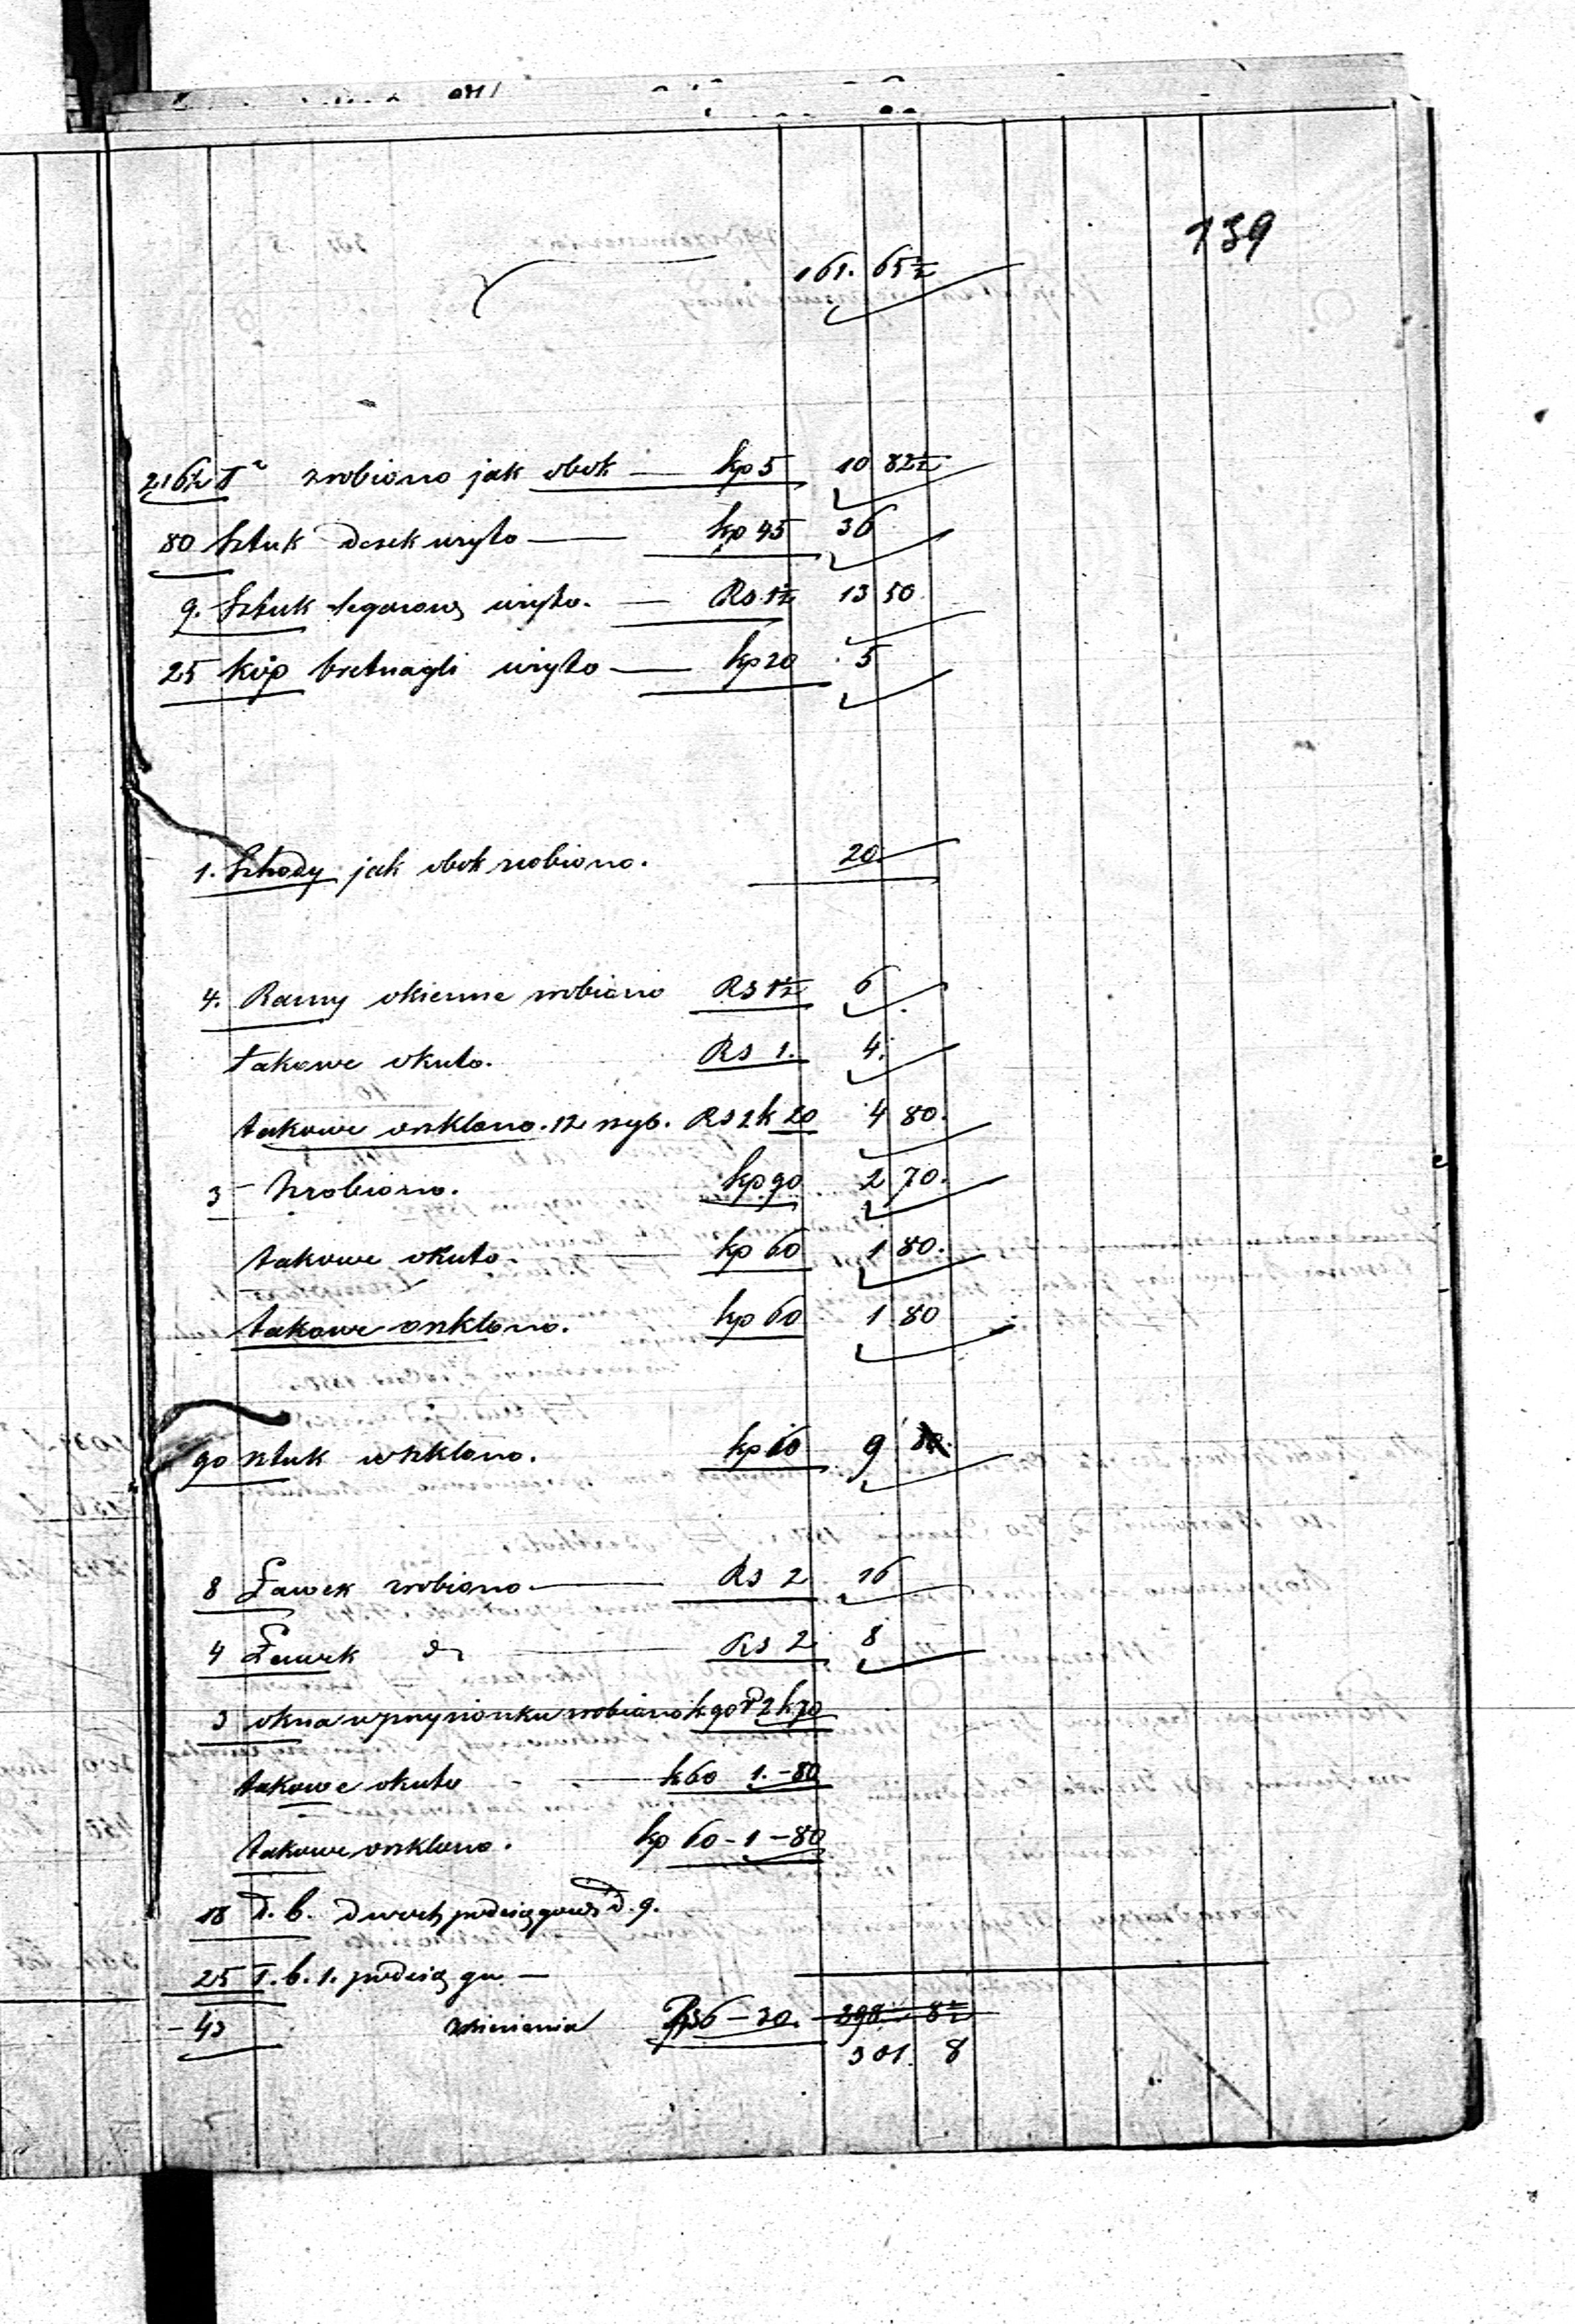 139
161. 65½
216½ ſ² zrobiono jak obok — kp 5 10 82½
80 Sztuk desek użyto — kp 45 36
9. Sztuk legarów użyto. — Rs 1½ 13 50
25 kóp bretnagli użyto — kp 20 5
1. Schody jak obok zrobiono. 20
4. Ramy okienne zrobiono Rs 1½ 6
takowe okuto. Rs 1. 4.
takowe oszklono. 12 szyb. Rs 2 k 20 4 80.
3 – Zrobiono. kp 90 2 70.
takowe okuto. kp 60 1 80.
takowe oszklono. kp 60 1 80
90 sztuk wszklono. kp 10 9
8 Ławek zrobiono — Rs 2 16
4 Ławek d — Rs 2 8
3 okna w przysionku zrobiono k 90 r 2 k 70
takowe okuto — k 60 1.-80
takowe oszklono. kp 60-1-80
18 ſ. b. dwóch podciągów d. 9.
25 ſ. b. 1. podciągu —
43 Rs 6-30. 298. 8½
301. 8